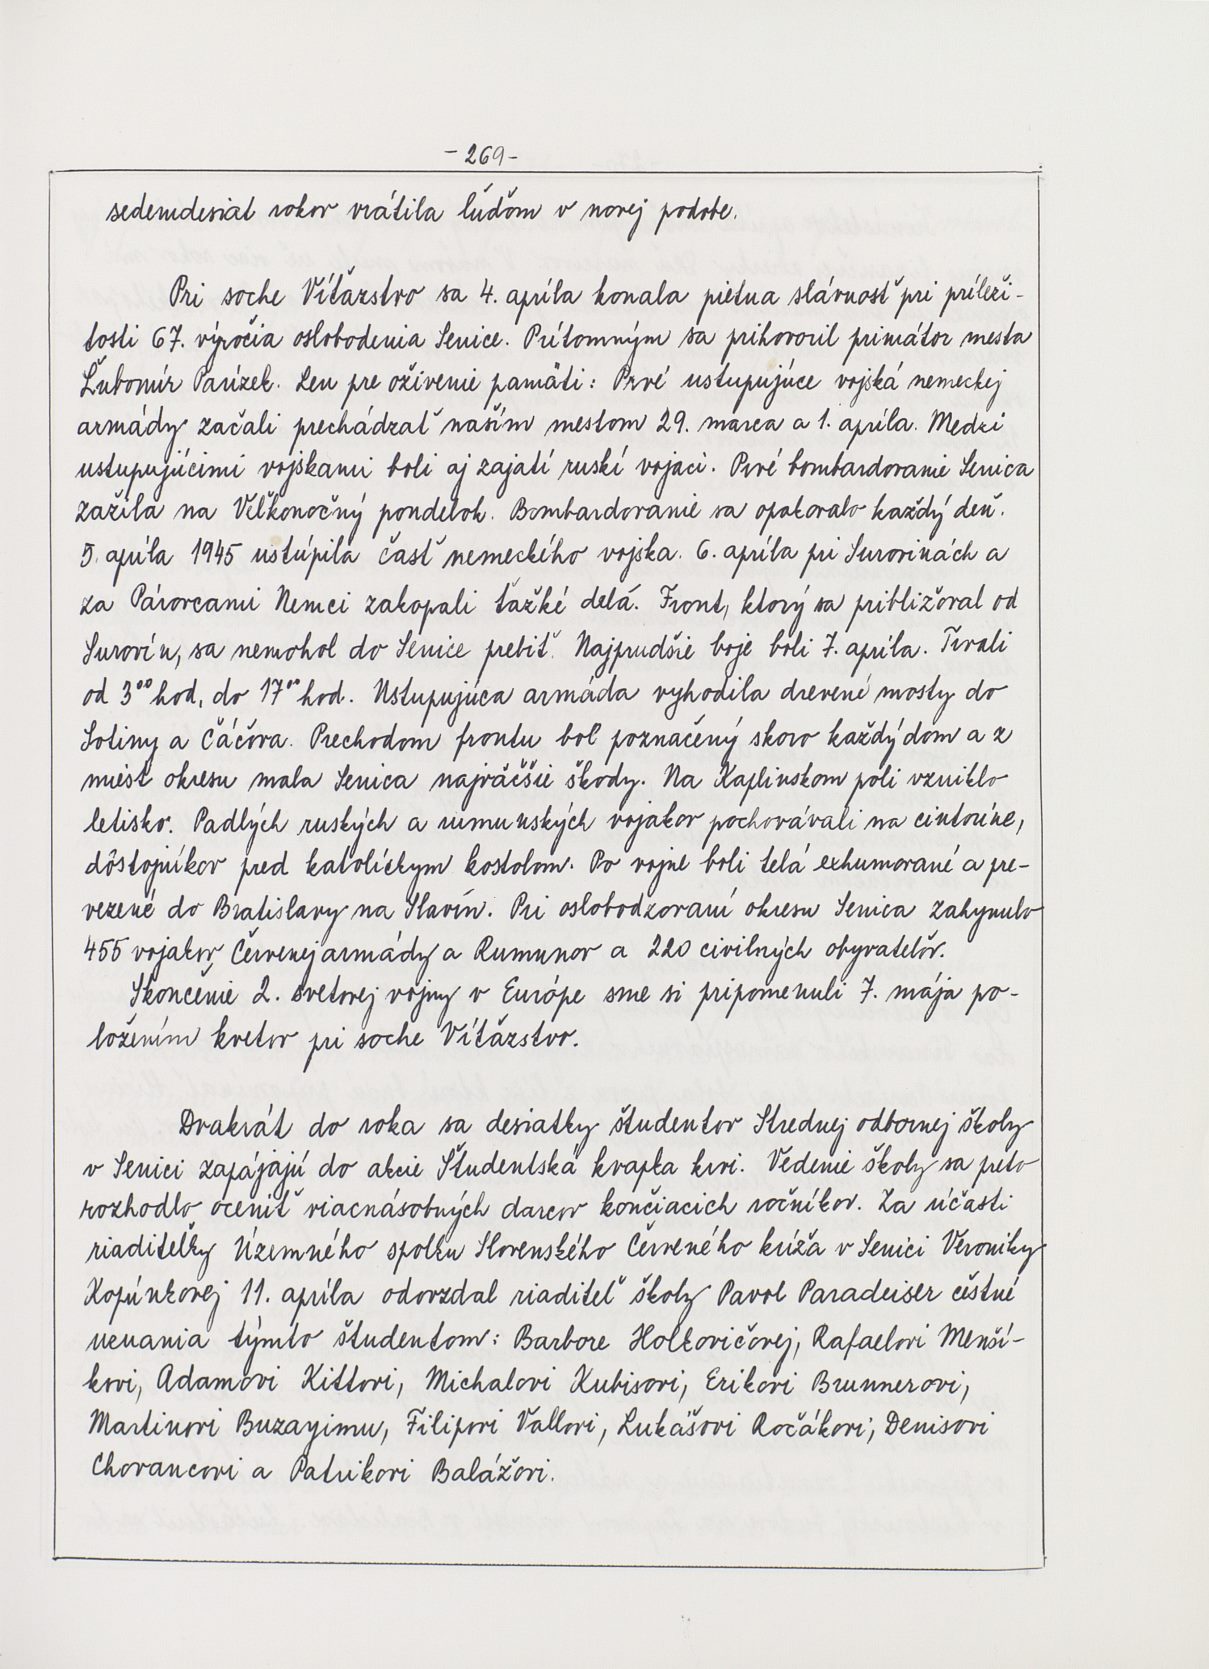 - 269 -
sedemdesiat rokov vrátila ľuďom v novej podobe.
Pri soche Víťazstvo sa 4. apríla konala pietna slávnosť pri príleži-
tosti 67. výročia oslobodenia Senice. Prítomným sa prihovoril primátor mesta
Ľubomír Parízek. Len pre oživenie pamäti: Prvé ustupujúce vojská nemeckej
armády začali prechádzať naším mestom 29. marca a 1. apríla. Medzi
ustupujúcimi vojskami boli aj zajatí ruskí vojaci. Prvé bombardovanie Senica
zažila na Veľkonočný pondelok. Bombardovanie sa opakovalo každý deň.
5. apríla 1945 ustúpila časť nemeckého vojska. 6. apríla pri Surovinách a
za Pávorcami Nemci zakopali ťažké delá. Front, ktorý sa približoval od
Surovín, sa nemohol do Senice prebiť. Najprudšie boje boli 7. apríla. Trvali
od 3⁰⁰ hod. do 17⁰⁰ hod. Ustupujúca armáda vyhodila drevené mosty do
Sotiny a Čáčova. Prechodom frontu bol poznačený skoro každý dom a z
miest okresu mala Senica najväčšie škody. Na Kaplinskom poli vzniklo
letisko. Padlých ruských a rumunských vojakov pochovávali na cintoríne,
dôstojníkov pred katolíckym kostolom. Po vojne boli telá exhumované a pre-
vezené do Bratislavy na Slavín. Pri oslobodzovaní okresu Senica zahynulo
455 vojakov Červenej armády a Rumunov a 220 civilných obyvateľov.
Skončenie 2. svetovej vojny v Európe sme si pripomenuli 7. mája po-
ložením kvetov pri soche Víťazstvo.
Dvakrát do roka sa desiatky študentov Strednej odbornej školy
v Senici zapájajú do akcie Študentská kvapka krvi. Vedenie školy sa preto
rozhodlo oceniť viacnásobných darcov končiacich ročníkov. Za účasti
riaditeľky Územného spolku Slovenského Červeného kríža v Senici Veroniky
Kopúnkovej 11. apríla odovzdal riaditeľ školy Pavol Paradeiser čestné
uznania týmto študentom: Barbore Holkovičovej, Rafaelovi Menší-
kovi, Adamovi Kittovi, Michalovi Kubisovi, Erikovi Brunnerovi,
Martinovi Buzayimu, Filipovi Vallovi, Lukášovi Ročákovi, Denisovi
Chovancovi a Patrikovi Balážovi.